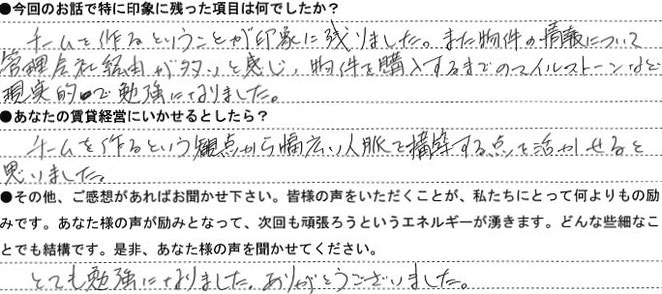 ●今回のお話で特に印象に残った項目は何でしたか？
チームを作るということが印象に残りました。また物件の情報について
管理会社経由が多いと感じ、物件を購入するまでのマイルストーンなど
現実的で勉強になりました。
●あなたの賃貸経営にいかせるとしたら？
チームを作るという観点から幅広い人脈を構築する点を活かせると
思いました。
●その他、ご感想があればお聞かせ下さい。皆様の声をいただくことが、私たちにとって何よりもの励
みです。あなた様の声が励みとなって、次回も頑張ろうというエネルギーが湧きます。どんな些細なこ
とでも結構です。是非、あなた様の声を聞かせてください。
とても勉強になりました。ありがとうございました。